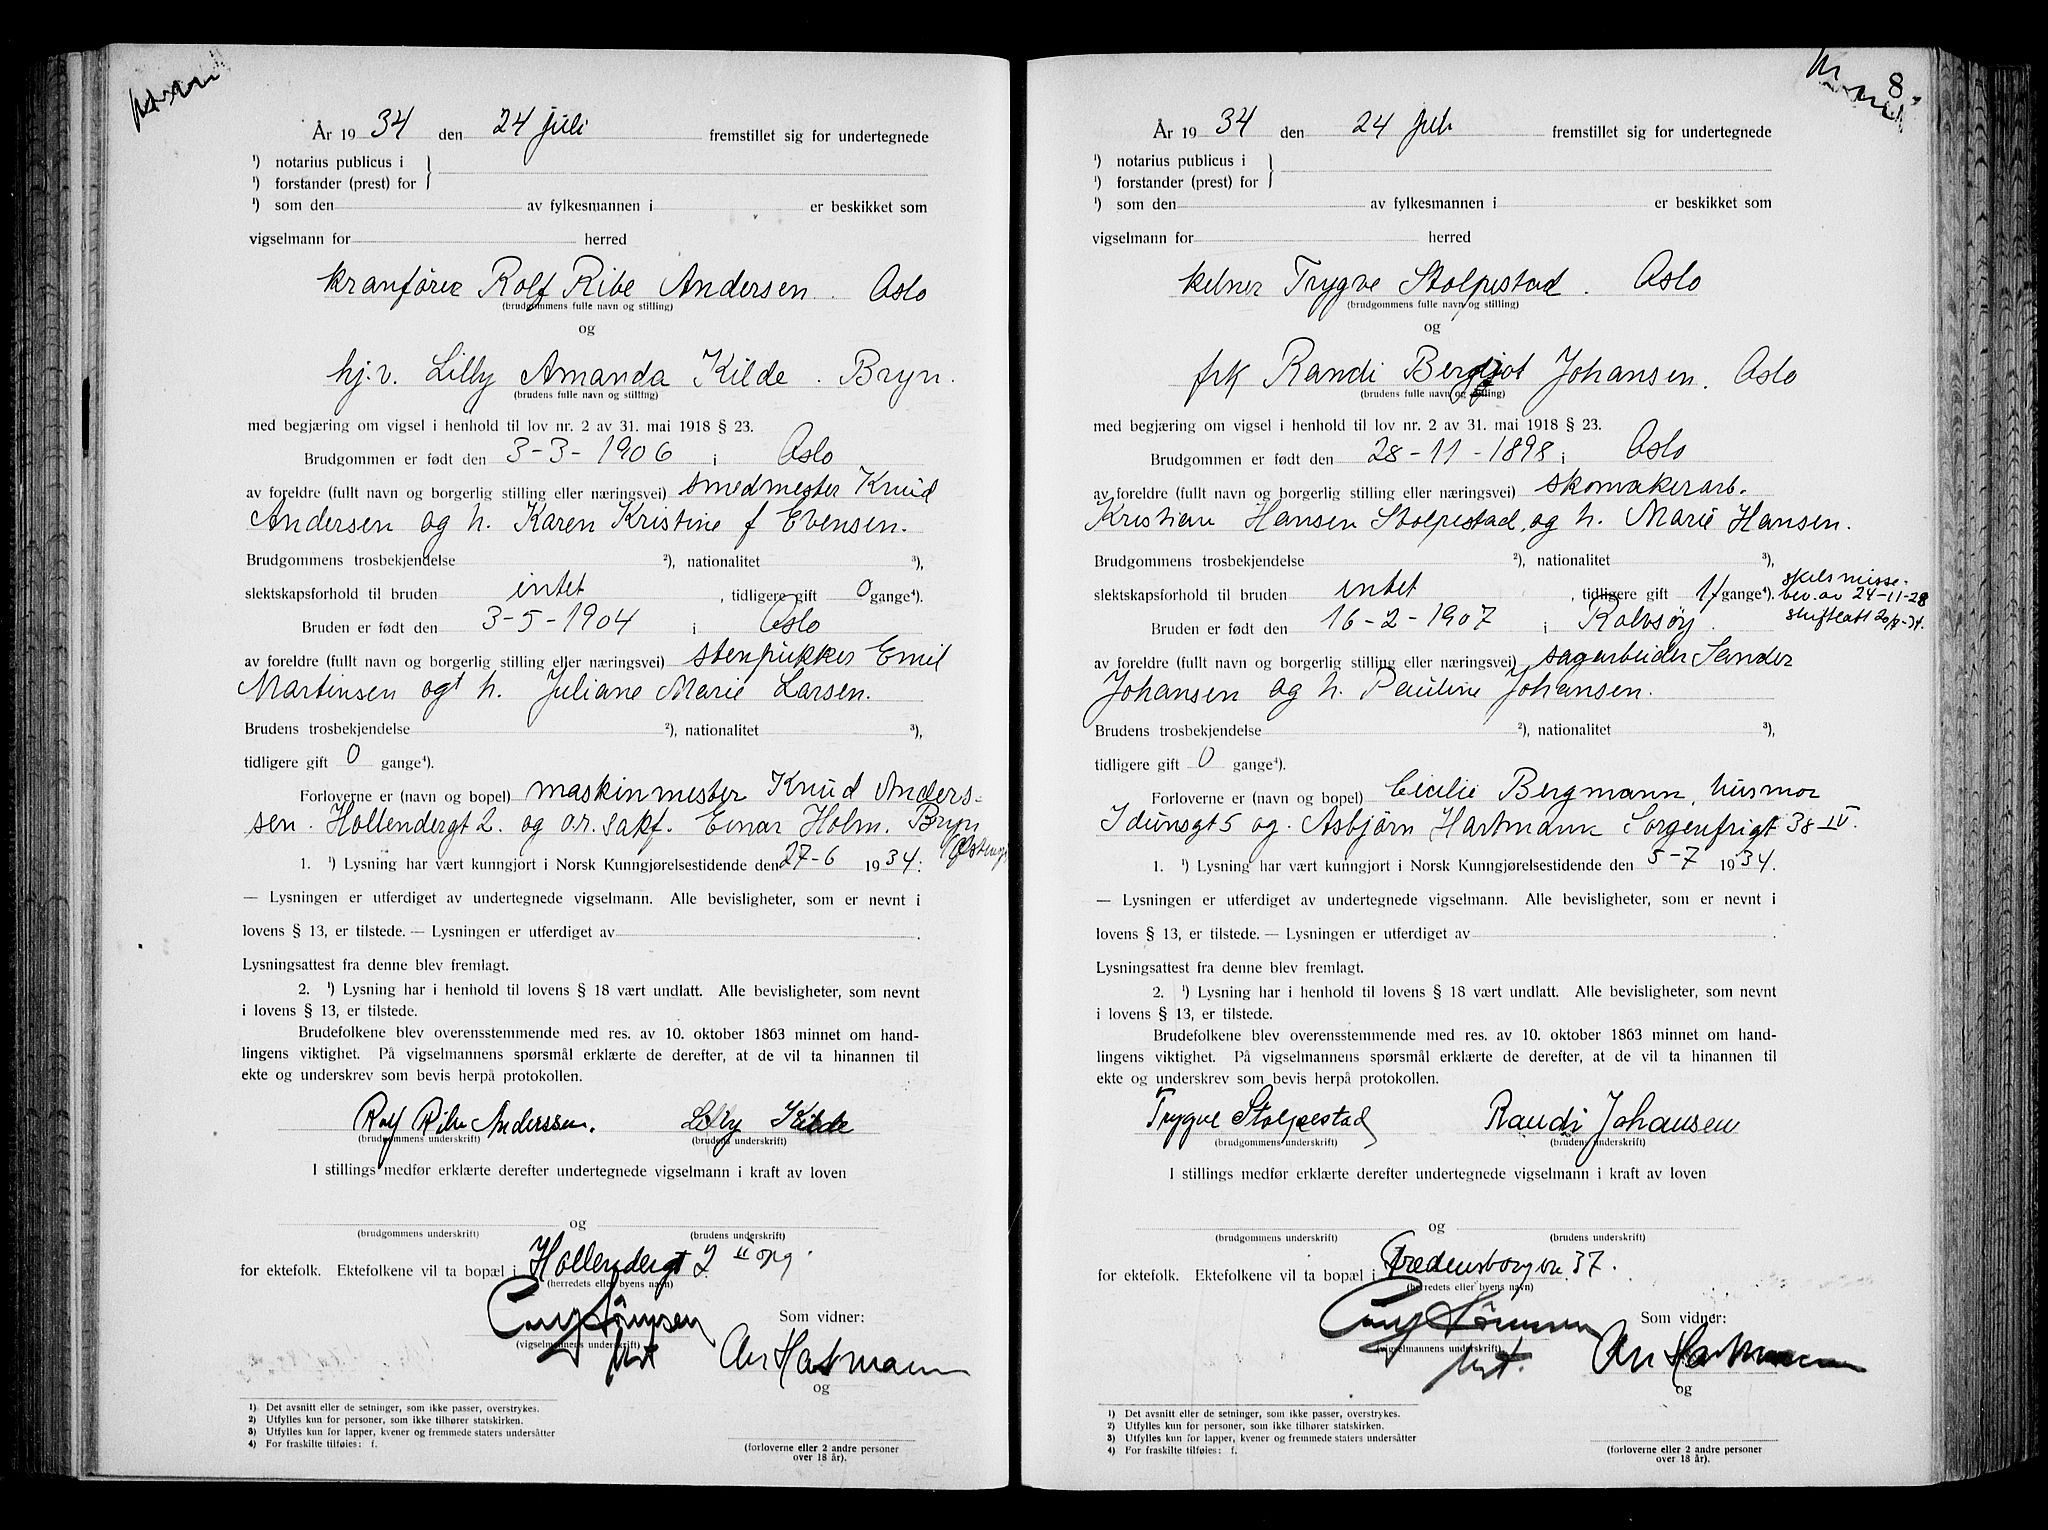 År 1934 den 24 juli fremstillet sig for undertegnede
¹) notarius publicus i
¹) forstander (prest) for
¹) som den av fylkesmannen i er beskikket som
vigselmann for herred
kranfører Rolf Ribe Andersen. Oslo
(brudgommens fulle navn og stilling)
og
hj.v. Lilly Amanda Kilde. Bryn.
(brudens fulle navn og stilling)
med begjæring om vigsel i henhold til lov nr. 2 av 31. mai 1918 § 23.
Brudgommen er født den 3-3-1906 i Oslo
av foreldre (fullt navn og borgerlig stilling eller næringsvei) smedmester Knud
Andersen og h. Karen Kristine f Evensen.
Brudgommens trosbekjendelse ²), nationalitet ³),
slektskapsforhold til bruden intet, tidligere gift 0 gange⁴).
Bruden er født den 3-5-1904 i Oslo
av foreldre (fullt navn og borgerlig stilling eller næringsvei) stenpukker Emil
Martinsen og h. Juliane Marie Larsen.
Brudens trosbekjendelse ²), nationalitet ³),
tidligere gift 0 gange⁴).
Forloverne er (navn og bopel) maskinmester Knud Anders-
sen. Hollendergt 2. og o.r.sakf. Einar Holm. Bryn
1. ¹) Lysning har vært kunngjort i Norsk Kunngjørelsestidende den 27-6 1934.
— Lysningen er utferdiget av undertegnede vigselmann. Alle bevisligheter, som er nevnt i
lovens § 13, er tilstede. — Lysningen er utferdiget av
Lysningsattest fra denne blev fremlagt.
2. ¹) Lysning har i henhold til lovens § 18 vært undlatt. Alle bevisligheter, som nevnt
i lovens § 13, er tilstede.
Brudefolkene blev overensstemmende med res. av 10. oktober 1863 minnet om hand-
lingens viktighet. På vigselmannens spørsmål erklærte de derefter, at de vil ta hinannen til
ekte og underskrev som bevis herpå protokollen.
Rolf Ribe Anderssen. Lilly Kilde
(brudgommens underskrift) (brudens underskrift)
I stillings medfør erklærte derefter undertegnede vigselmann i kraft av loven
og
(brudgommens underskrift) (brudens underskrift)
for ektefolk. Ektefolkene vil ta bopæl i Hollendergt 2 II opg.
(herredets eller byens navn)
Som vidner:
(vigselmannens underskrift)
Hartmann
og
1) Det avsnitt eller de setninger, som ikke passer, overstrykes.
2) Utfylles kun for personer, som ikke tilhører statskirken.
3) Utfylles kun for lapper, kvener og fremmede staters undersåtter
4) For fraskilte tilføies: f.
(forloverne eller 2 andre personer
over 18 år).
8
År 1934 den 24 juli fremstillet sig for undertegnede
¹) notarius publicus i
¹) forstander (prest) for
¹) som den av fylkesmannen i er beskikket som
vigselmann for herred
kelner Trygve Stolpestad. Oslo
(brudgommens fulle navn og stilling)
og
frk Randi Bergljot Johansen. Oslo
(brudens fulle navn og stilling)
med begjæring om vigsel i henhold til lov nr. 2 av 31. mai 1918 § 23.
Brudgommen er født den 28-11-1898 i Oslo
av foreldre (fullt navn og borgerlig stilling eller næringsvei) skomakerarb.
Kristian Hansen Stolpestad, og h. Marie Hansen.
Brudgommens trosbekjendelse ²), nationalitet ³),
slektskapsforhold til bruden intet, tidligere gift 1 f gange⁴). skilsmisse-
bev. av 24-11-28
Bruden er født den 16-2-1907 i Rolvsøy.
av foreldre (fullt navn og borgerlig stilling eller næringsvei) sagarbeider Sander
Johansen og h. Pauline Johansen.
Brudens trosbekjendelse ²), nationalitet ³),
tidligere gift 0 gange⁴).
Forloverne er (navn og bopel) Cecilie Bergmann, husmor
Idunsgt 5 og. Asbjørn Hartmann Sorgenfrigt 38 IV.
1. ¹) Lysning har vært kunngjort i Norsk Kunngjørelsestidende den 5-7 1934.
— Lysningen er utferdiget av undertegnede vigselmann. Alle bevisligheter, som er nevnt i
lovens § 13, er tilstede. — Lysningen er utferdiget av
Lysningsattest fra denne blev fremlagt.
2. ¹) Lysning har i henhold til lovens § 18 vært undlatt. Alle bevisligheter, som nevnt
i lovens § 13, er tilstede.
Brudefolkene blev overensstemmende med res. av 10. oktober 1863 minnet om hand-
lingens viktighet. På vigselmannens spørsmål erklærte de derefter, at de vil ta hinannen til
ekte og underskrev som bevis herpå protokollen.
Trygve Stolpestad Randi Johansen
(brudgommens underskrift) (brudens underskrift)
I stillings medfør erklærte derefter undertegnede vigselmann i kraft av loven
og
(brudgommens underskrift) (brudens underskrift)
for ektefolk. Ektefolkene vil ta bopæl i Fredensborgvn. 37.
(herredets eller byens navn)
Som vidner:
(vigselmannens underskrift)
Hartmann
og
1) Det avsnitt eller de setninger, som ikke passer, overstrykes.
2) Utfylles kun for personer, som ikke tilhører statskirken.
3) Utfylles kun for lapper, kvener og fremmede staters undersåtter
4) For fraskilte tilføies: f.
(forloverne eller 2 andre personer
over 18 år).